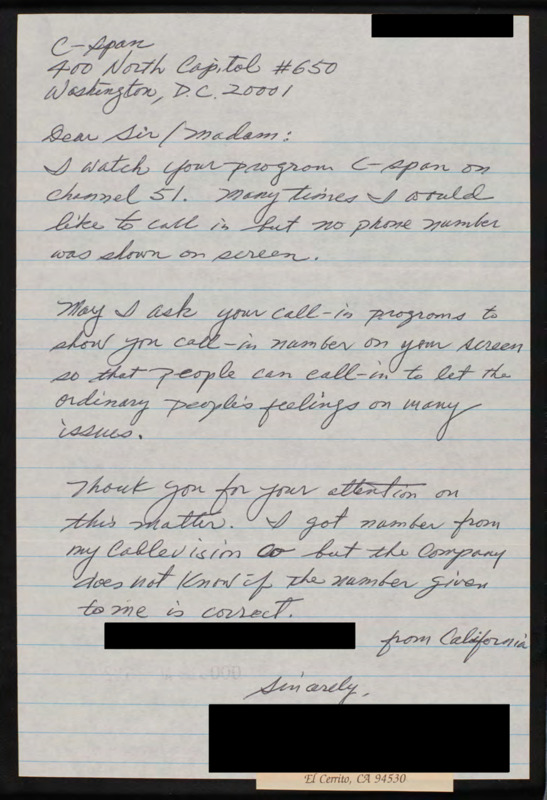 C-span
400 North Capitol #650
Washington, D.C. 20001
Dear Sir/Madam:
I watch your program C-span on
channel 51. Many times I would
like to call in but no phone number
was shown on screen.
May I ask your call-in programs to
show you call-in number on your screen
so that people can call-in to let the
ordinary people's feelings on many
issues.
Thank you for your attention on
this matter. I got number from
my Cablevision Co but the Company
does not know if the number given
to me is correct.
from California
Sincerely,
El Cerrito, CA 94530